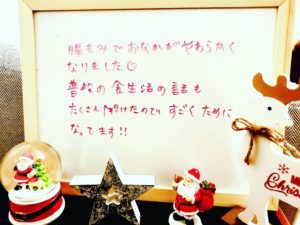 腸もみでおなかがやわらかく
なりました♡
普段の食生活の話も
たくさん聞けたので すごく ために
なってます!!